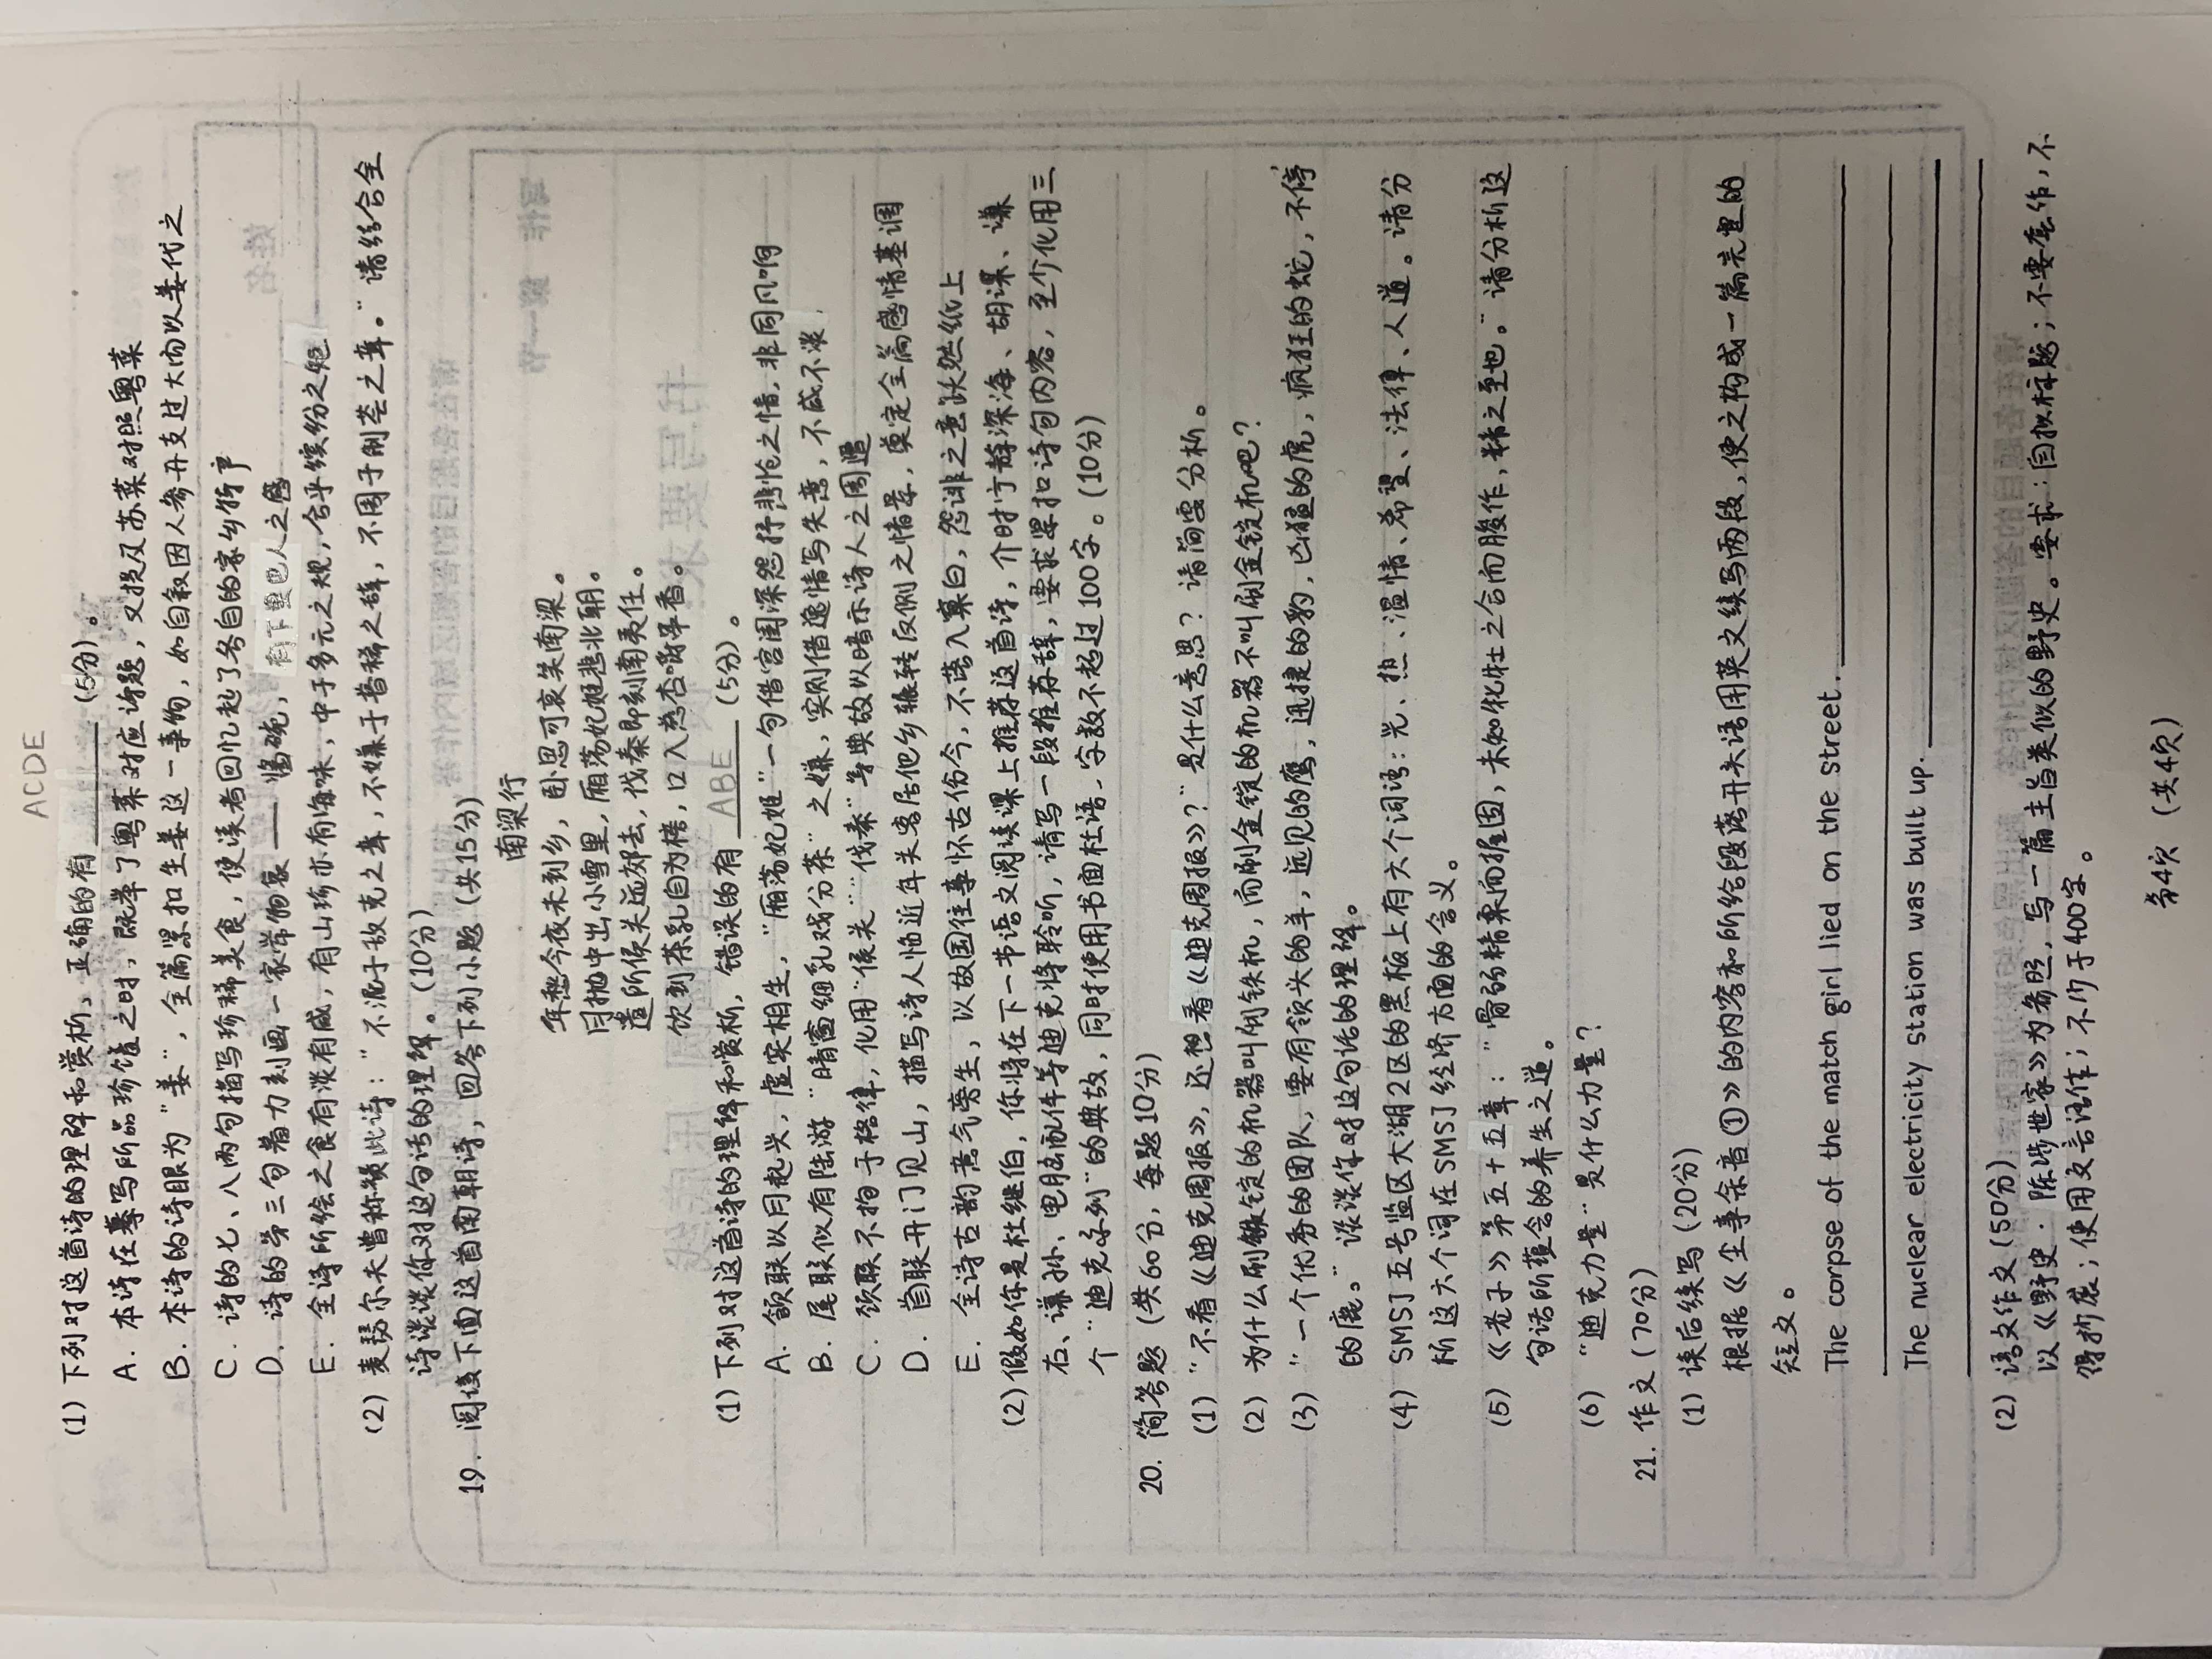 ACDE
(1) 下列对这首诗的理解和赏析，正确的有______（5分）。
A. 本诗在摹写所品珍馐之时，既举了粤菜对应诗题，又提及苏菜对照粤菜
B. 本诗的诗眼为“姜”，全篇紧扣生姜这一事物，如自叙因人参开支过大而以姜代之
C. 诗的七、八两句描写珍稀美食，使读者回忆起了各自的家乡特产
D. 诗的第三句着力刻画一家常物象——酱碗，有下里巴人之感
E. 全诗所绘之食有淡有咸，有山珍亦有海味，中于多元之规，合乎缤纷之矩
(2) 麦瑟尔夫曾称赞此诗：“不泥于敌克之聋，不嫌于普稀之辞，不囿于制荟之聋。”请结合全
诗谈谈你对这句话的理解。（10分）
19. 阅读下面这首南朝诗，回答下列小题（共15分）
南梁行
年愁今夜未到乡，卧思可哀笑南梁。
月抛中出小雪里，厢荡妃姬悲北朝。
遣所侯头远郊去，伐秦即刻南夷任。
饮到茶乳自为榜，口入慈杏嚼早香。
(1) 下列对这首诗的理解和赏析，错误的有 ABE （5分）。
A. 颔联以月起兴，虚实相生，“厢荡妃姬”一句借宫闺深怨抒悲怆之情，非同凡响
B. 尾联似有陆游“晴窗细乳戏分茶”之嫌，实则借逸情写失意，不咸不淡
C. 颈联不拘于格律，化用“侯头”“伐秦”等典故以暗示诗人之周遭
D. 首联开门见山，描写诗人临近年头客居他乡辗转反侧之情景，奠定全篇感情基调
E. 全诗古韵意气旁生，以故国往事怀古伤今，不落入窠臼，怨诽之意跃然纸上
(2) 假如你是杜继伯，你将在下一节语文阅读课上推荐这首诗，介时宁静深海、胡课、谦
右、谦孙、电脑配件等迪克将聆听，请写一段推荐辞，要求紧扣诗句内容，至少化用三
个“迪克系列”的典故，同时使用书面杜语，字数不超过100字。（10分）
20. 简答题（共60分，每题10分）
(1) “不看《迪克周报》，还想看《迪克周报》？”是什么意思？请简要分析。
(2) 为什么刷铁锭的机器叫刷铁机，而刷金锭的机器不叫刷金锭机吧？
(3) “一个优秀的团队，要有领头的羊，远见的鹰，迅捷的豹，凶猛的虎，疯狂的蛇，不停
的鹿。”谈谈你对这句话的理解。
(4) SMSJ五号监区大湖2区的黑板上有六个词语：光、热、温情、希望、法律、人道。请分
析这六个词在SMSJ经济方面的含义。
(5) 《老子》第五十五章：“骨弱精柔而握固，未知牝牡之合而朘作，精之至也。”请分析这
句话所蕴含的养生之道。
(6) “迪克力量”是什么力量？
21. 作文（70分）
(1) 读后续写（20分）
根据《尘事余音①》的内容和所给段落开头语用英文续写两段，使之构成一篇完整的
短文。
The corpse of the match girl lied on the street.
The nuclear electricity station was built up.
(2) 语文作文（50分）
以《野史·陈涉世家》为参照，写一篇主旨类似的野史。要求：自拟标题；不要套作，不
得抄袭；使用文言语体；不少于400字。
第4页（共4页）